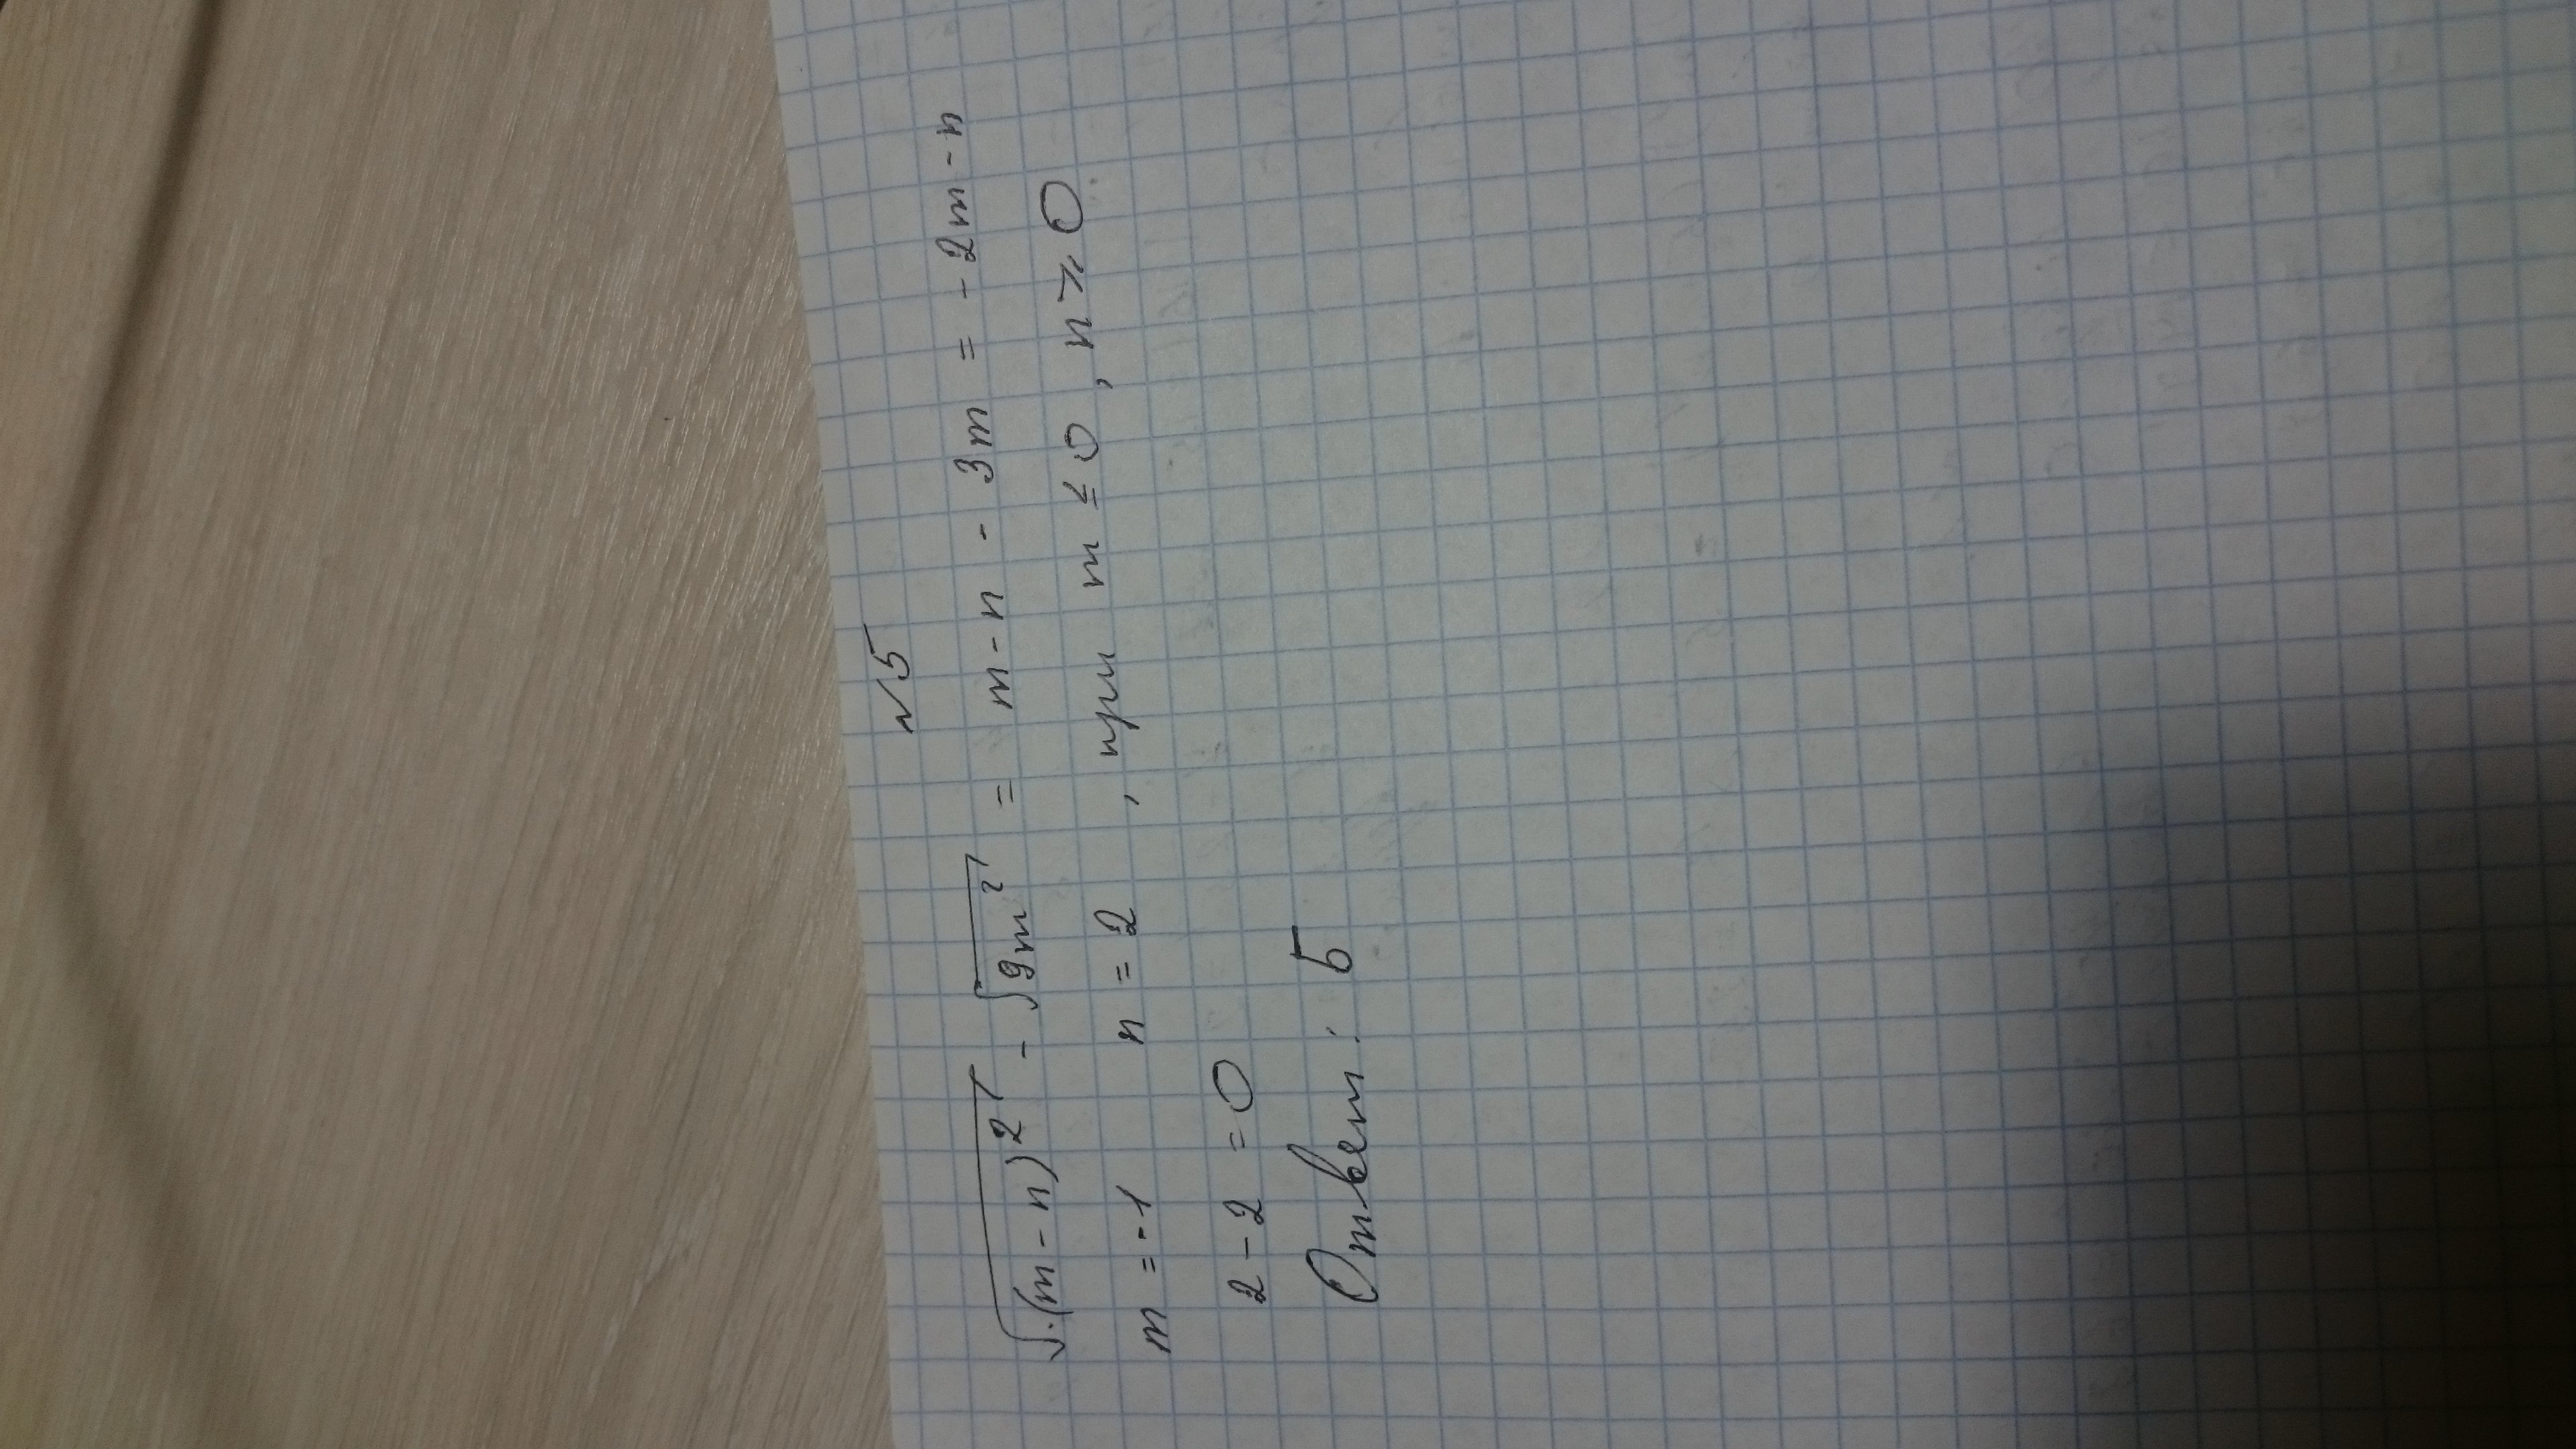 №5
√(m-n)² - √9m² = m-n - 3m = -2m-n
m = -1 n = 2 , при m ≤ 0 , n ⩾ 0
2-2 = 0
Ответ: Б